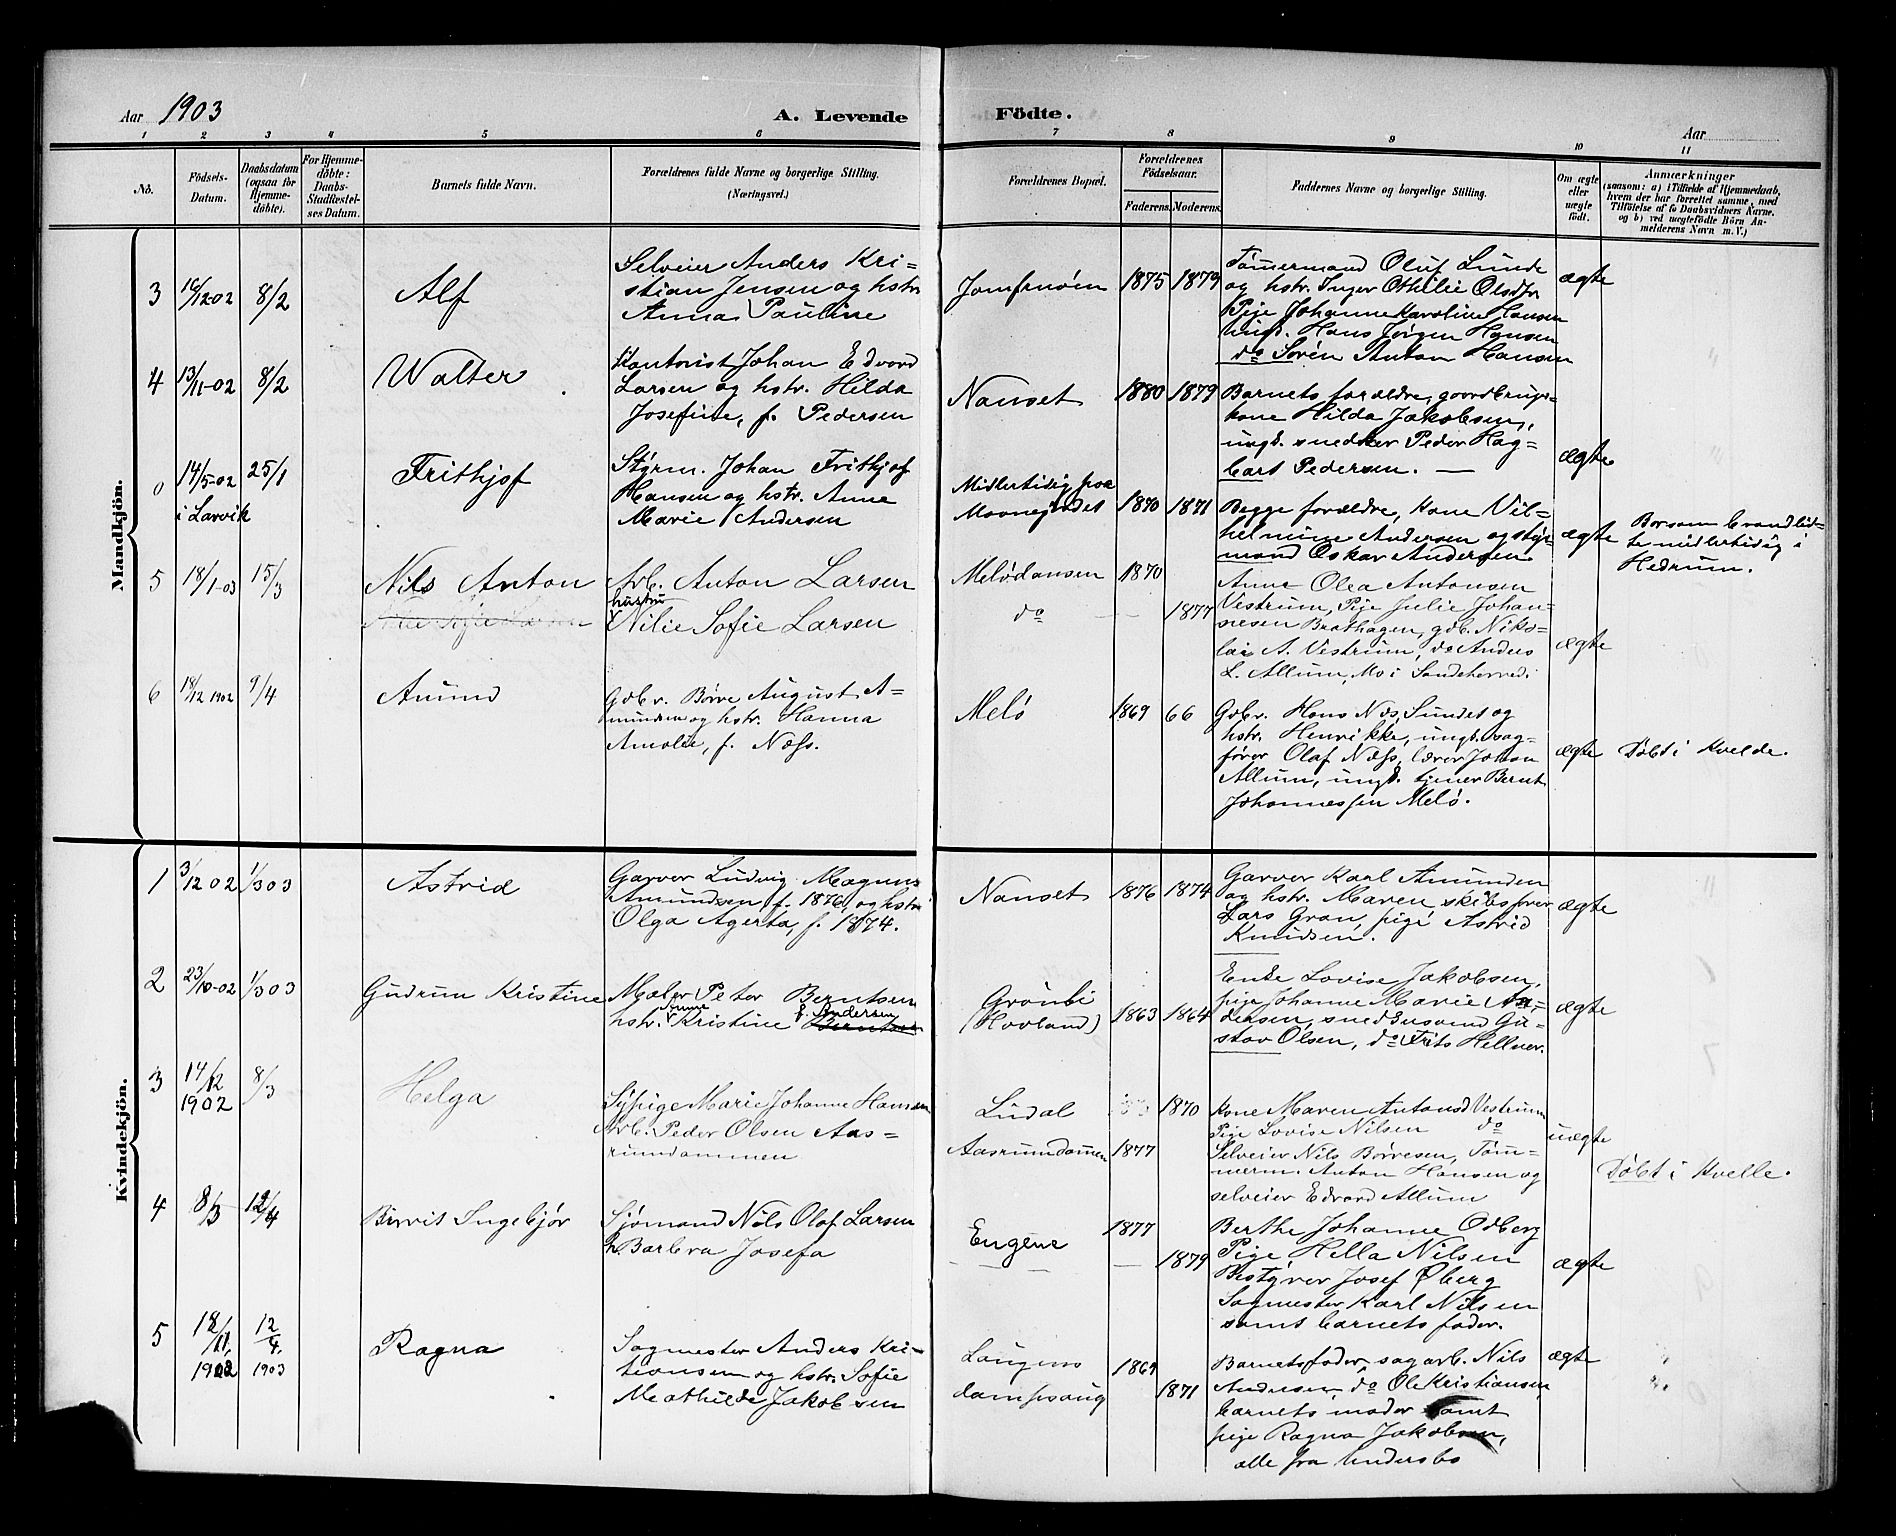 Aar 1903
A. Levende Födte.
Aar
1 2 3 4 5 6 7 8 9 10 11
No.
Födsels-
Datum.
Daabsdatum
(ogsaa for
Hjemme-
döbte).
For Hjemme-
döbte:
Daabs-
Stadfæstel-
ses Datum.
Barnets fulde Navn.
Forældrenes fulde Navne og borgerlige Stilling.
(Næringsvei.)
Forældrenes Bopæl.
Forældrenes
Födselsaar.
Faderens. Moderens.
Faddernes Navne og borgerlige Stilling.
Om ægte
eller
uægte
födt.
Anmærkninger
(saasom: a) i Tilfælde af Hjemmedaab,
hvem der har forrettet samme, med
Tilföielse af to Daabsvidners Navne,
og b) ved uægtefödte Börn An-
melderens Navn m. V.)
Mandkjön.
3
16/12-02
8/2
Alf
Selveier Anders Kri-
stian Jensen og hstr
Anna Pauline
Jomfruöen
1875
1879
Tömmermand Oluf Lunde
og hstr. Inger Othilie Olsdtr
Pige Johanne Karoline Hansen
ungk. Hans Jörgen Hansen
do Sören Anton Hansen
ægte
"
4
13/11-02
8/2
Walter
Kontorist Johan Edvard
Larsen og hstr. Hilda
Josefine, f. Pedersen
Nanset
1880
1879
Barnets forældre, gaardbrugs-
kone Hilda Jakobsen,
ungk. snedker Peder Hag-
bart Pedersen. —
ægte
0
14/5-02
i Larvik
25/1
Frithjof
Styrm. Johan Frithjof
Hansen og hstr. Anne
Marie Andersen
Midlertidig paa
1870
1871
Begge forældre, kone Vil-
helmine Andersen og styr-
mand Oskar Andersen
ægte
Borsom brandlid-
te midlertidig i
Hedrum.
5
18/1-03
15/3
Nils Anton
Arb. Anton Larsen
hustru
Nilie Sofie Larsen
Melödansen
do —
1870
1877
Anne Olea Antonsen
Vestrum, Pige Julie Johan-
nesen Brathagen, gdb. Niko-
lai A. Vestrum, do Anders
L. Allum, Mo i Sandeherred.
ægte
6
18/12 1902
9/4
Amund
Gdbr. Börre August A-
mundsen og hstr. Hanna
Amalie, f. Næss.
Melö
1869
66
Gdbr. Hans Næs, Sundet og
hstr. Henrikke, ungk. sag-
förer Olaf Næss, lærer Johan
Allum, ungk. tjener Bernt
Johannessen Melö.
ægte
Döbt i Kvelde.
Kvindekjön.
1
3/12 02
1/3 03
Astrid
Garver Ludvig Magnus
Amundsen f. 1876, og hstr
Olga Agerta, f. 1874.
Nanset
1876
1874
Garver Karl Amundsen
og hstr. Maren skibsförer
Lars Gran, pige Astrid
Knudsen.
ægte
"
2
23/10-02
1/3 03
Gudrun Kristine
Maler Peter Berntsen
hstr. Anne Kristine f. Andersen
Grönli
(Hovland)
1863
1864
Enke Lovise Jakobsen,
pige Johanne Marie An-
dersen, snedkersvend Gu-
stav Olsen, do Frits Hellner.
ægte
3
14/12
1902
8/3
Helga
Sypige Marie Johanne Hansen
Arb. Peder Olsen Aas-
rumdammen
Ludal
Aasrumdammen
1870
1877
Kone Maren Antonsd Vestrum
Pige Lovise Nilsen do
Selveier Nils Börresen, Töm-
merm. Anton Hansen og
selveier Edvard Allum
uægte
Döbt i Kvelle.
4
8/3
12/4
Birvit Ingebjör
Sjömand Nils Olaf Larsen
h. Barbra Josefa
Engene
—
1877
1879
Berthe Johanne Odberg
Pige Hella Nilsen
Bestyrer Josef Öberg
Sagmester Karl Nilsen
samt barnets fader.
ægte
5
18/11,
1902
12/4.
1903
Ragna
Sagmester Anders Kri-
stiansen og hstr. Sofie
Mathilde Jakobsen
Laugens
dampsaug
1869
1871
Barnets fader, sagarb. Nils
Andersen, do Ole Kristiansen,
barnets moder samt
pige Ragna Jakobsen,
alle fra Undersbo
ægte
"